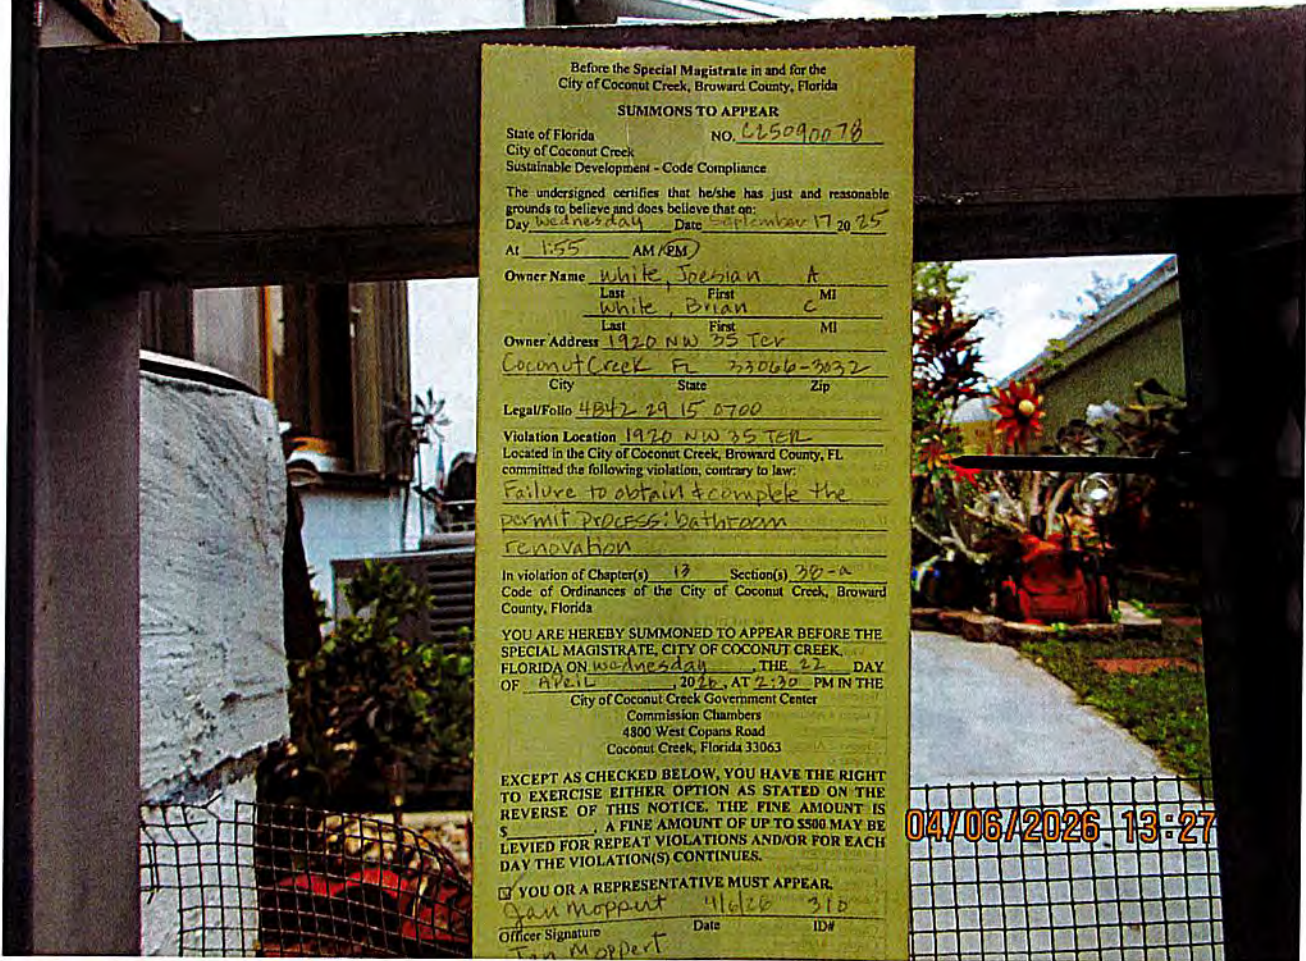 Before the Special Magistrate in and for the
City of Coconut Creek, Broward County, Florida
SUMMONS TO APPEAR
State of Florida NO. C25090078
City of Coconut Creek
Sustainable Development - Code Compliance
The undersigned certifies that he/she has just and reasonable
grounds to believe and does believe that on:
Day Wednesday Date September 17 20 25
At 1:55 AM/PM
Owner Name White, Joesian A
Last First MI
White, Brian C
Last First MI
Owner Address 1920 NW 35 Ter
Coconut Creek FL 33066-3032
City State Zip
Legal/Folio 4842 29 15 0700
Violation Location 1920 NW 35 TER
Located in the City of Coconut Creek, Broward County, FL
committed the following violation, contrary to law:
Failure to obtain & complete the
permit PROCESS: bathroom
renovation
In violation of Chapter(s) 13 Section(s) 38-a
Code of Ordinances of the City of Coconut Creek, Broward
County, Florida
YOU ARE HEREBY SUMMONED TO APPEAR BEFORE THE
SPECIAL MAGISTRATE, CITY OF COCONUT CREEK,
FLORIDA ON Wednesday, THE 22 DAY
OF APRIL, 2026, AT 2:30 PM IN THE
City of Coconut Creek Government Center
Commission Chambers
4800 West Copans Road
Coconut Creek, Florida 33063
EXCEPT AS CHECKED BELOW, YOU HAVE THE RIGHT
TO EXERCISE EITHER OPTION AS STATED ON THE
REVERSE OF THIS NOTICE. THE FINE AMOUNT IS
$ . A FINE AMOUNT OF UP TO $500 MAY BE
LEVIED FOR REPEAT VIOLATIONS AND/OR FOR EACH
DAY THE VIOLATION(S) CONTINUES.
YOU OR A REPRESENTATIVE MUST APPEAR.
Jan Moppert 4/6/26 310
Officer Signature Date ID#
Jan Moppert
04/06/2026 13:27